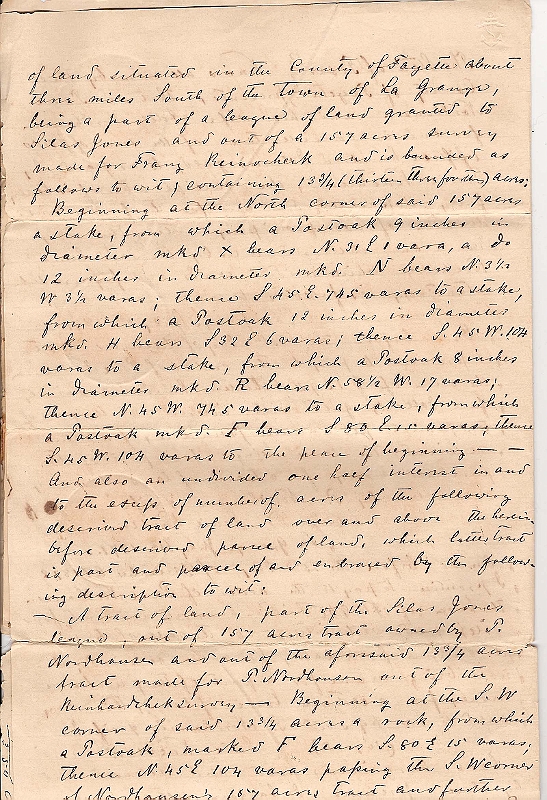 of land situated in the County of Fayette about
three miles South of the town of La Grange,
being a part of a league of land granted to
Silas Jones and out of a 157 acres survey
made for Franz Reinocherk and is bounded as
follows to wit; containing 13 3/4 (thirteen three fourths) acres:
Beginning at the North corner of said 157 acres
a stake, from which a Postoak 9 inches in
diameter mkd X bears N. 31 E 1 vara, a do
12 inches in diameter mkd. N bears N. 3 1/2
W 3 1/4 varas; thence S. 45 E. 745 varas to a stake,
from which a Postoak 12 inches in diameter
mkd. H bears S 32 E 6 varas; thence S. 45 W. 104
varas to a stake, from which a Postoak 8 inches
in diameter mkd R bears N. 58 1/2 W. 17 varas;
thence N. 45 W. 745 varas to a stake, from which
a Postoak mkd. F bears S 80 E 15 varas; thence
S. 45 W. 104 varas to the place of beginning — —
And also an undivided one half interest in and
to the excess of number of acres of the following
described tract of land over and above the herein
before described parcel of land, which latter tract
is part and parcel of and embraced by the follow-
ing description to wit:
— A tract of land, part of the Silas Jones
league, out of 157 acres tract owned by P.
Nordhausen and out of the aforesaid 13 3/4 acres
tract made for P. Nordhausen out of the
Reinhardchek survey — Beginning at the S. W
corner of said 13 3/4 acres a rock, from which
a Postoak, marked F bears S. 80 E 15 varas,
thence N. 45 E 104 varas passing the S. W corner
of Nordhausen's 157 acres tract and further